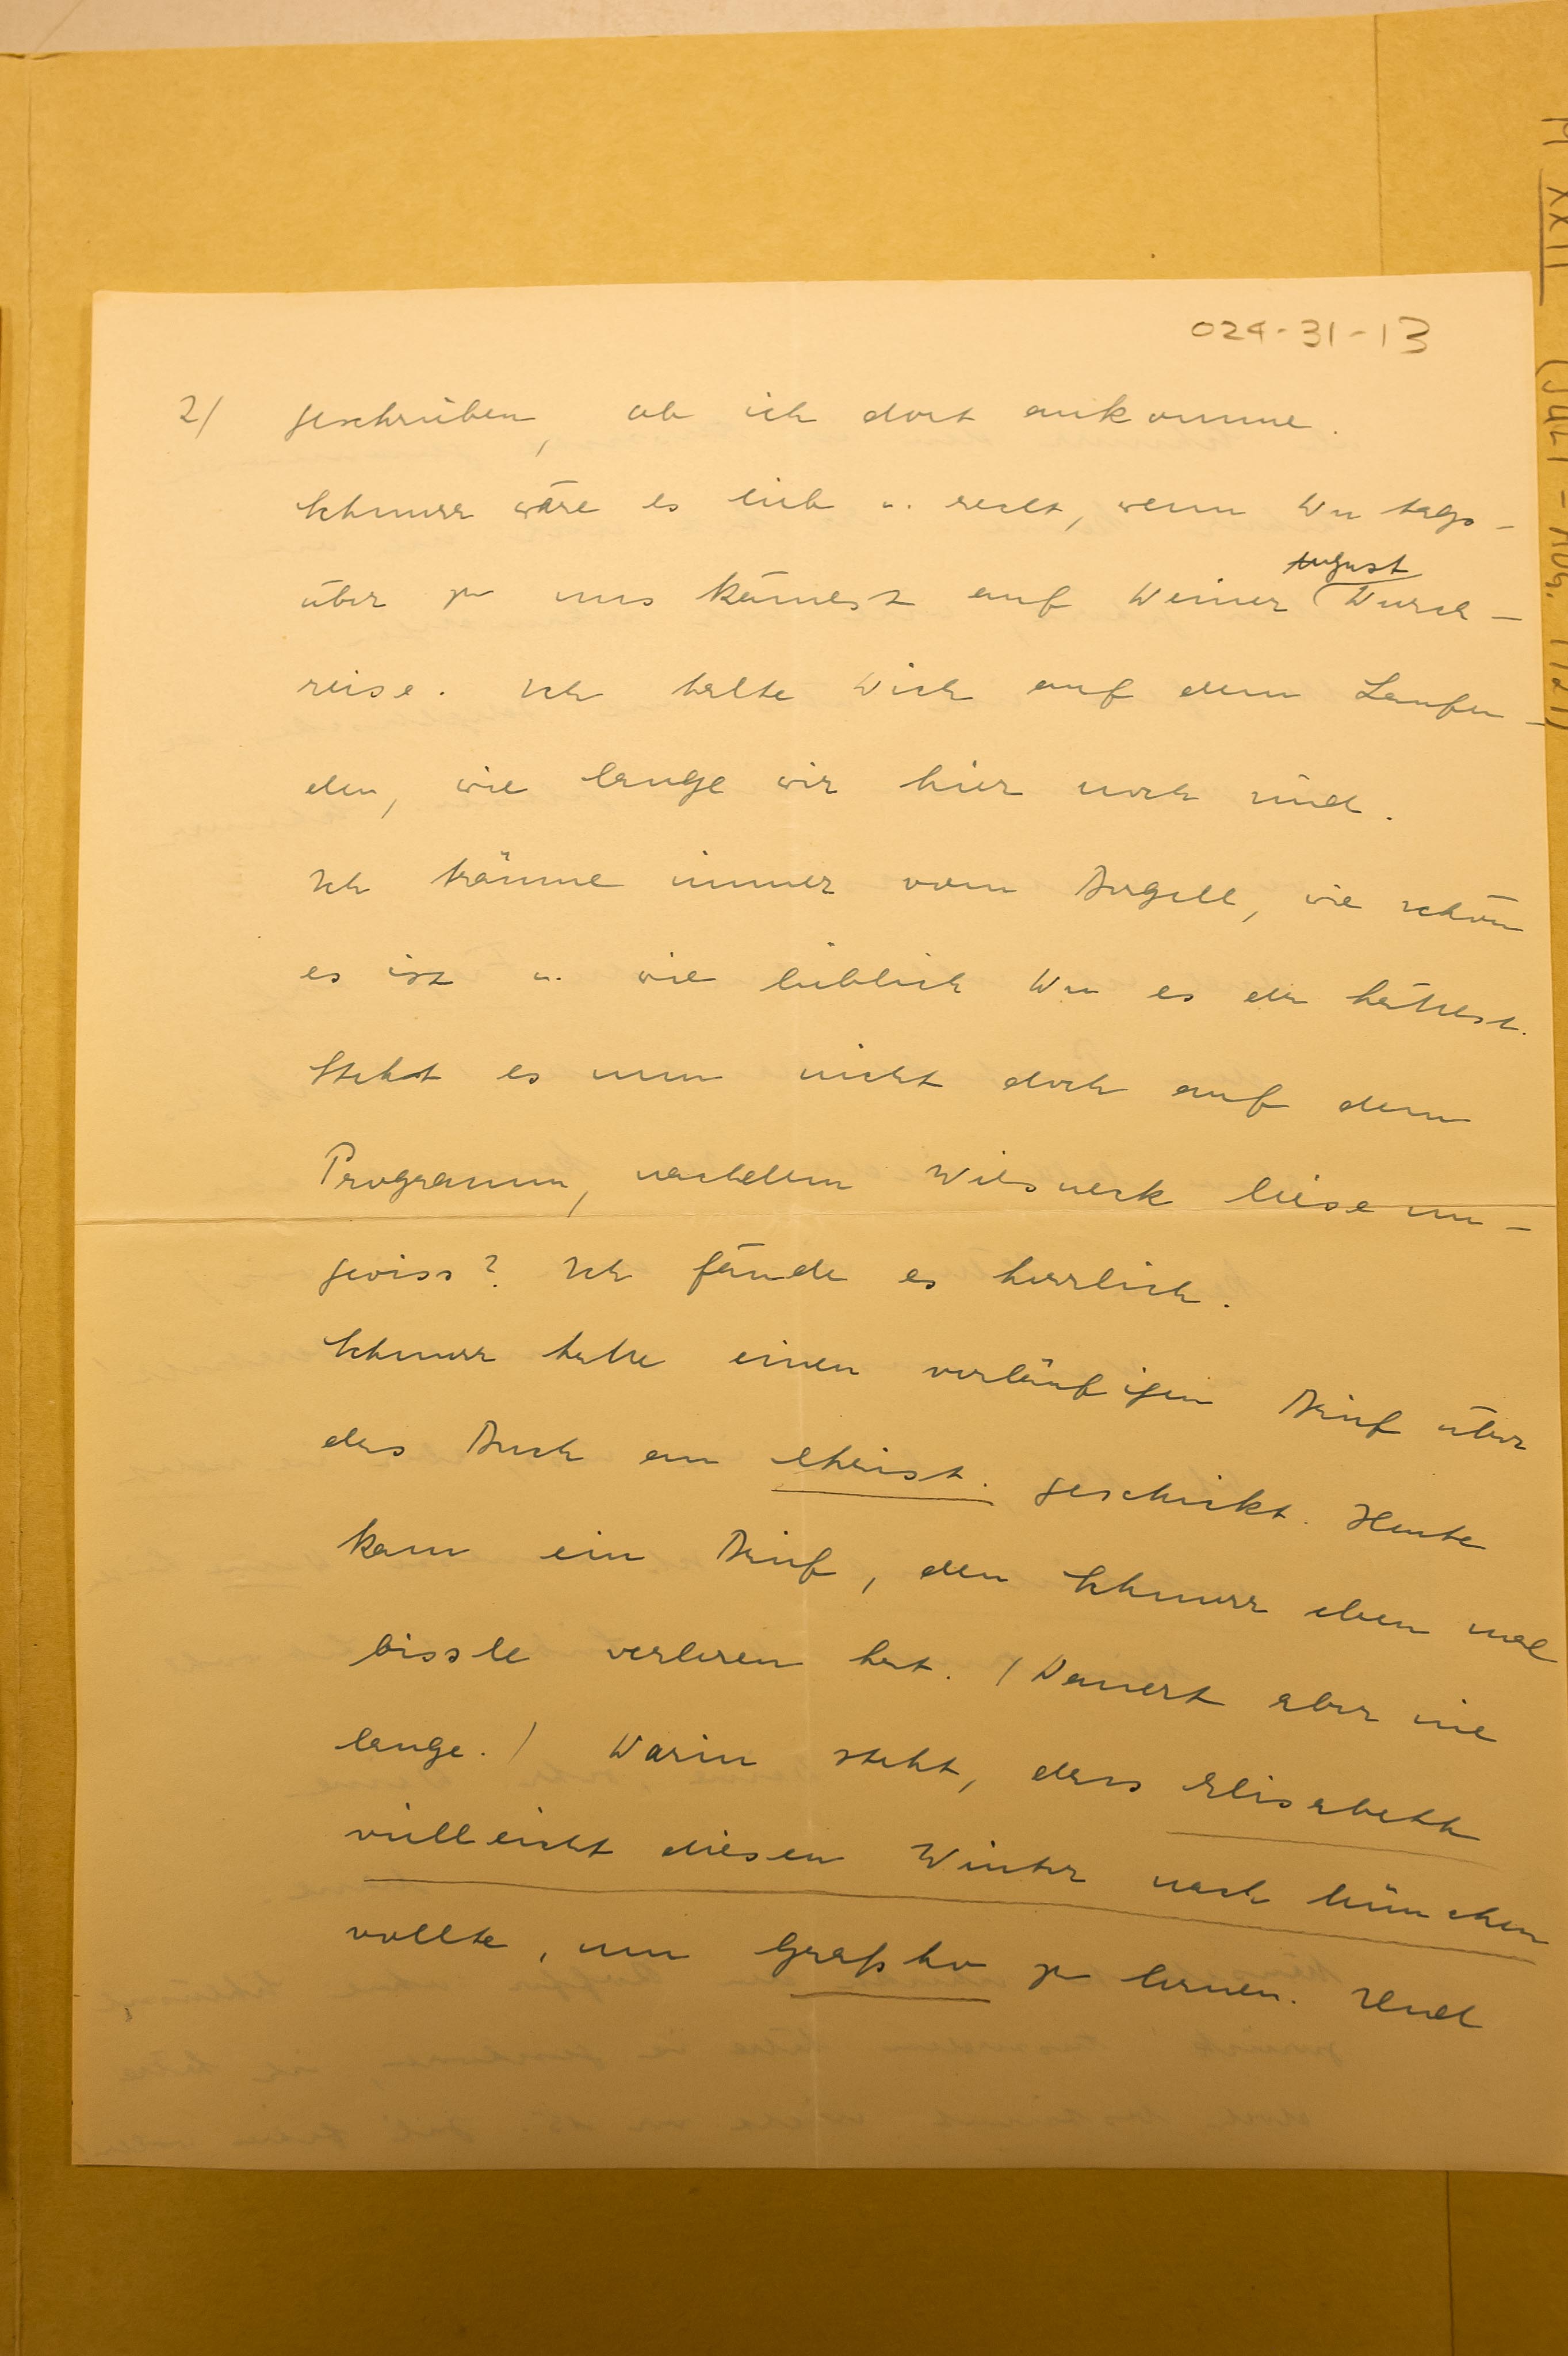 024-31-13
2/ geschrieben, ob ich dort ankomme.
Schnurr wäre es lieb u. recht, wenn Du tags-
über zu uns kämest auf Deiner August Durch-
reise. Ich halte Dich auf dem Laufen-
den, wie lange wir hier noch sind.
Ich träume immer vom Bergell, wie schön
es ist u. wie lieblich Du es da hättest.
Steht es nun nicht doch auf dem
Programm, nachdem Wilsneck diese un-
gewiss? Ich fände es herrlich.
Schnurr hatte einen vorläufigen Brief über
das Buch an Christ. geschickt. Heute
kam ein Brief, den Schnurr eben mal
bissle verloren hat. (Dauert aber nie
lange.) Darin steht, dass Elisabeth
vielleicht diesen Winter nach München
wollte, um Grapho zu lernen. Und
M XXII (JULI - AUG. 1921)